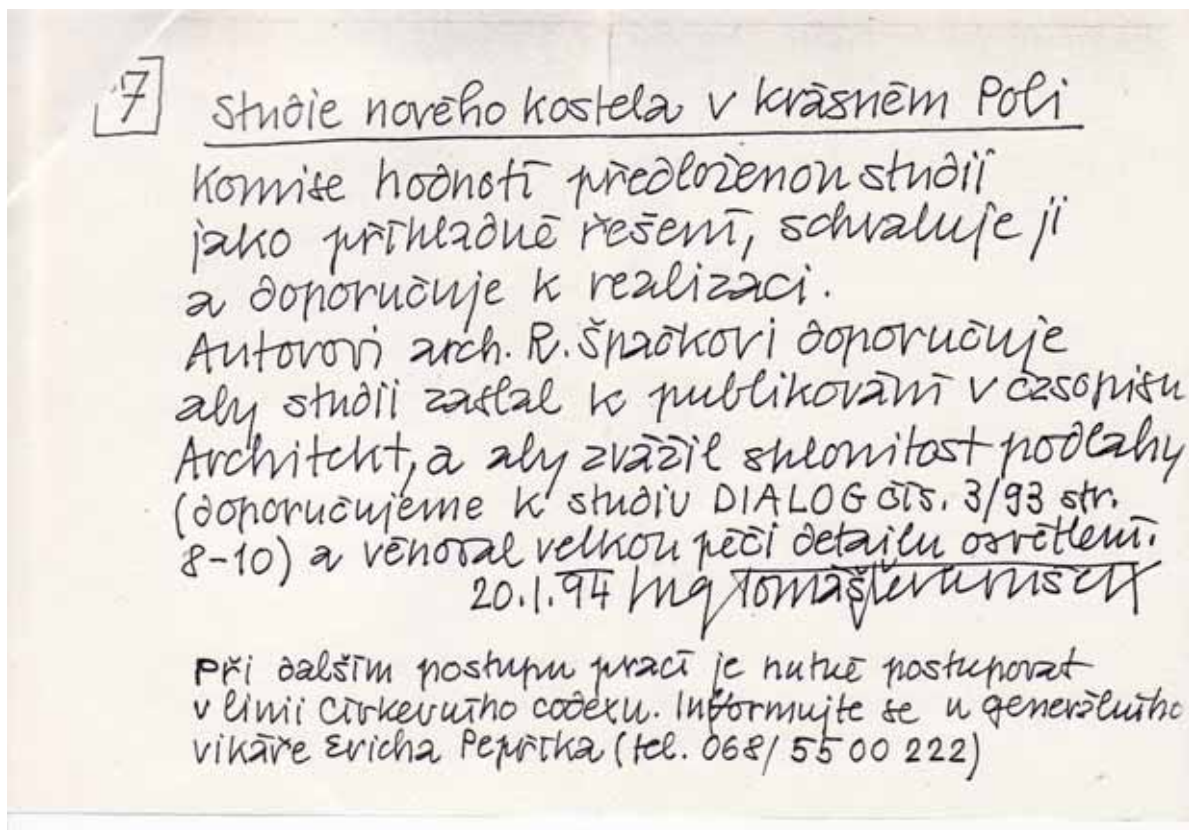 7 Studie nového kostela v krásném Poli
Komise hodnotí předloženou studii
jako příkladné řešení, schvaluje ji
a doporučuje k realizaci.
Autorovi arch. R. Špačkovi doporučuje
aby studii zaslal k publikování v časopisu
Architekt, a aby zvážil sklonitost podlahy
(doporučujeme k studiu DIALOG čís. 3/93 str.
8-10) a věnoval velkou péči detailu osvětlení.
20.1.94 Ing Tomáš
Při dalším postupu prací je nutné postupovat
v linii Církevního codexu. Informujte se u generálního
vikáře Ericha Pepříka (tel. 068/ 55 00 222)